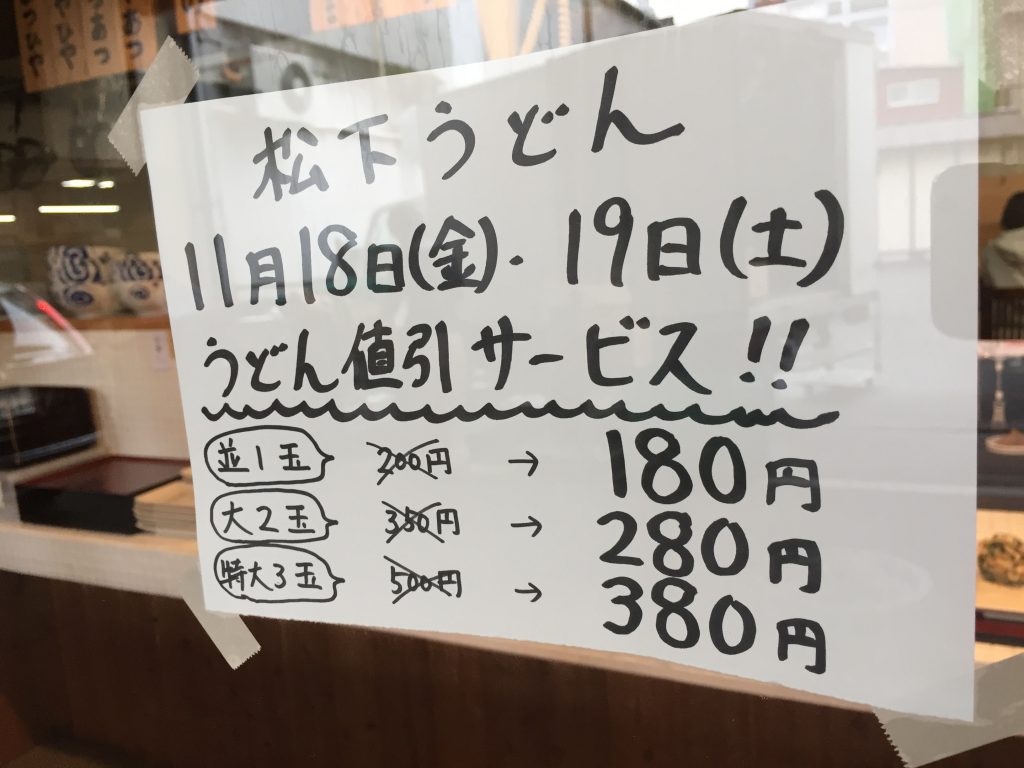 松下うどん
11月18日(金)・19日(土)
うどん値引サービス!!
並1玉 200円 → 180円
大2玉 350円 → 280円
特大3玉 500円 → 380円